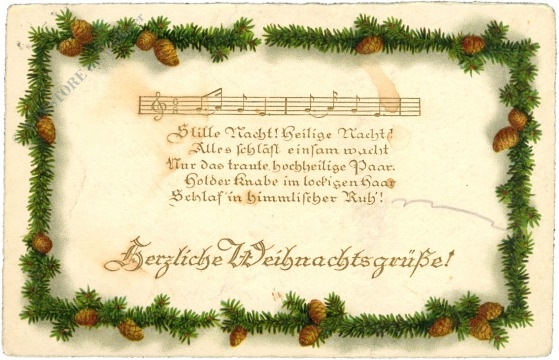 Stille Nacht! Heilige Nacht!
Alles schläft einsam wacht
Nur das traute hochheilige Paar.
Holder Knabe im lockigen Haar
Schlaf' in himmlischer Ruh'!
Herzliche Weihnachtsgrüße!